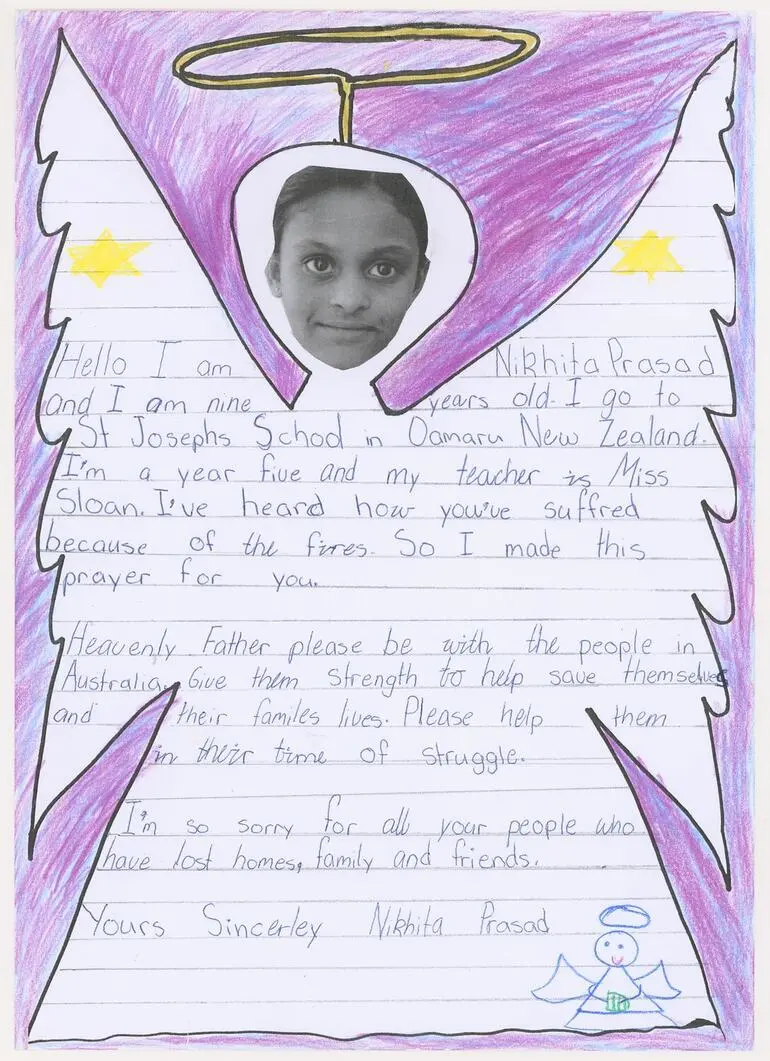 Hello I am Nikhita Prasad
and I am nine years old. I go to
St Josephs School in Oamaru New Zealand.
I'm a year five and my teacher is Miss
Sloan. I've heard how you've suffred
because of the fires. So I made this
prayer for you.
Heavenly Father please be with the people in
Australia. Give them strength to help save themselves
and their familes lives. Please help them
in their time of struggle.
I'm so sorry for all your people who
have lost homes, family and friends.
Yours Sincerley Nikhita Prasad